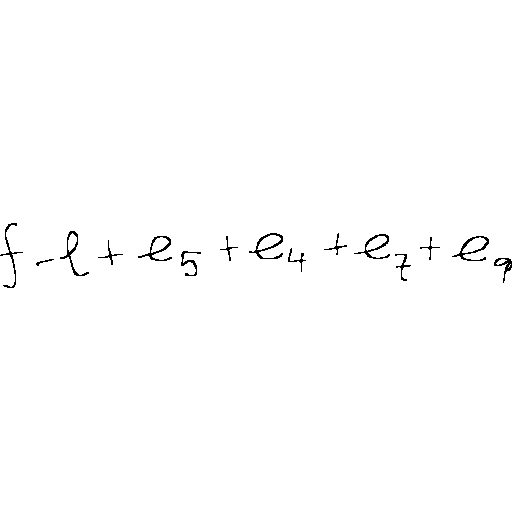 f - l + e₅ + e₄ + e₇ + e₉